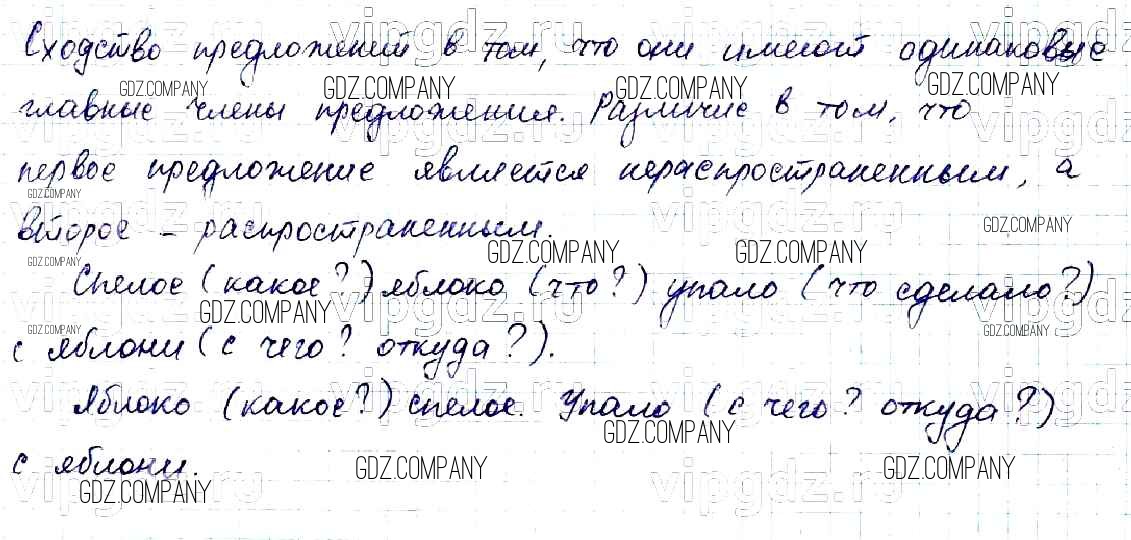 Сходство предложений в том, что они имеют одинаковые
главные члены предложения. Различие в том, что
первое предложение является нераспространенным, а
второе – распространенным.
Спелое (какое?) яблоко (что?) упало (что сделало?)
с яблони (с чего? откуда?).
Яблоко (какое?) спелое. Упало (с чего? откуда?)
с яблони.